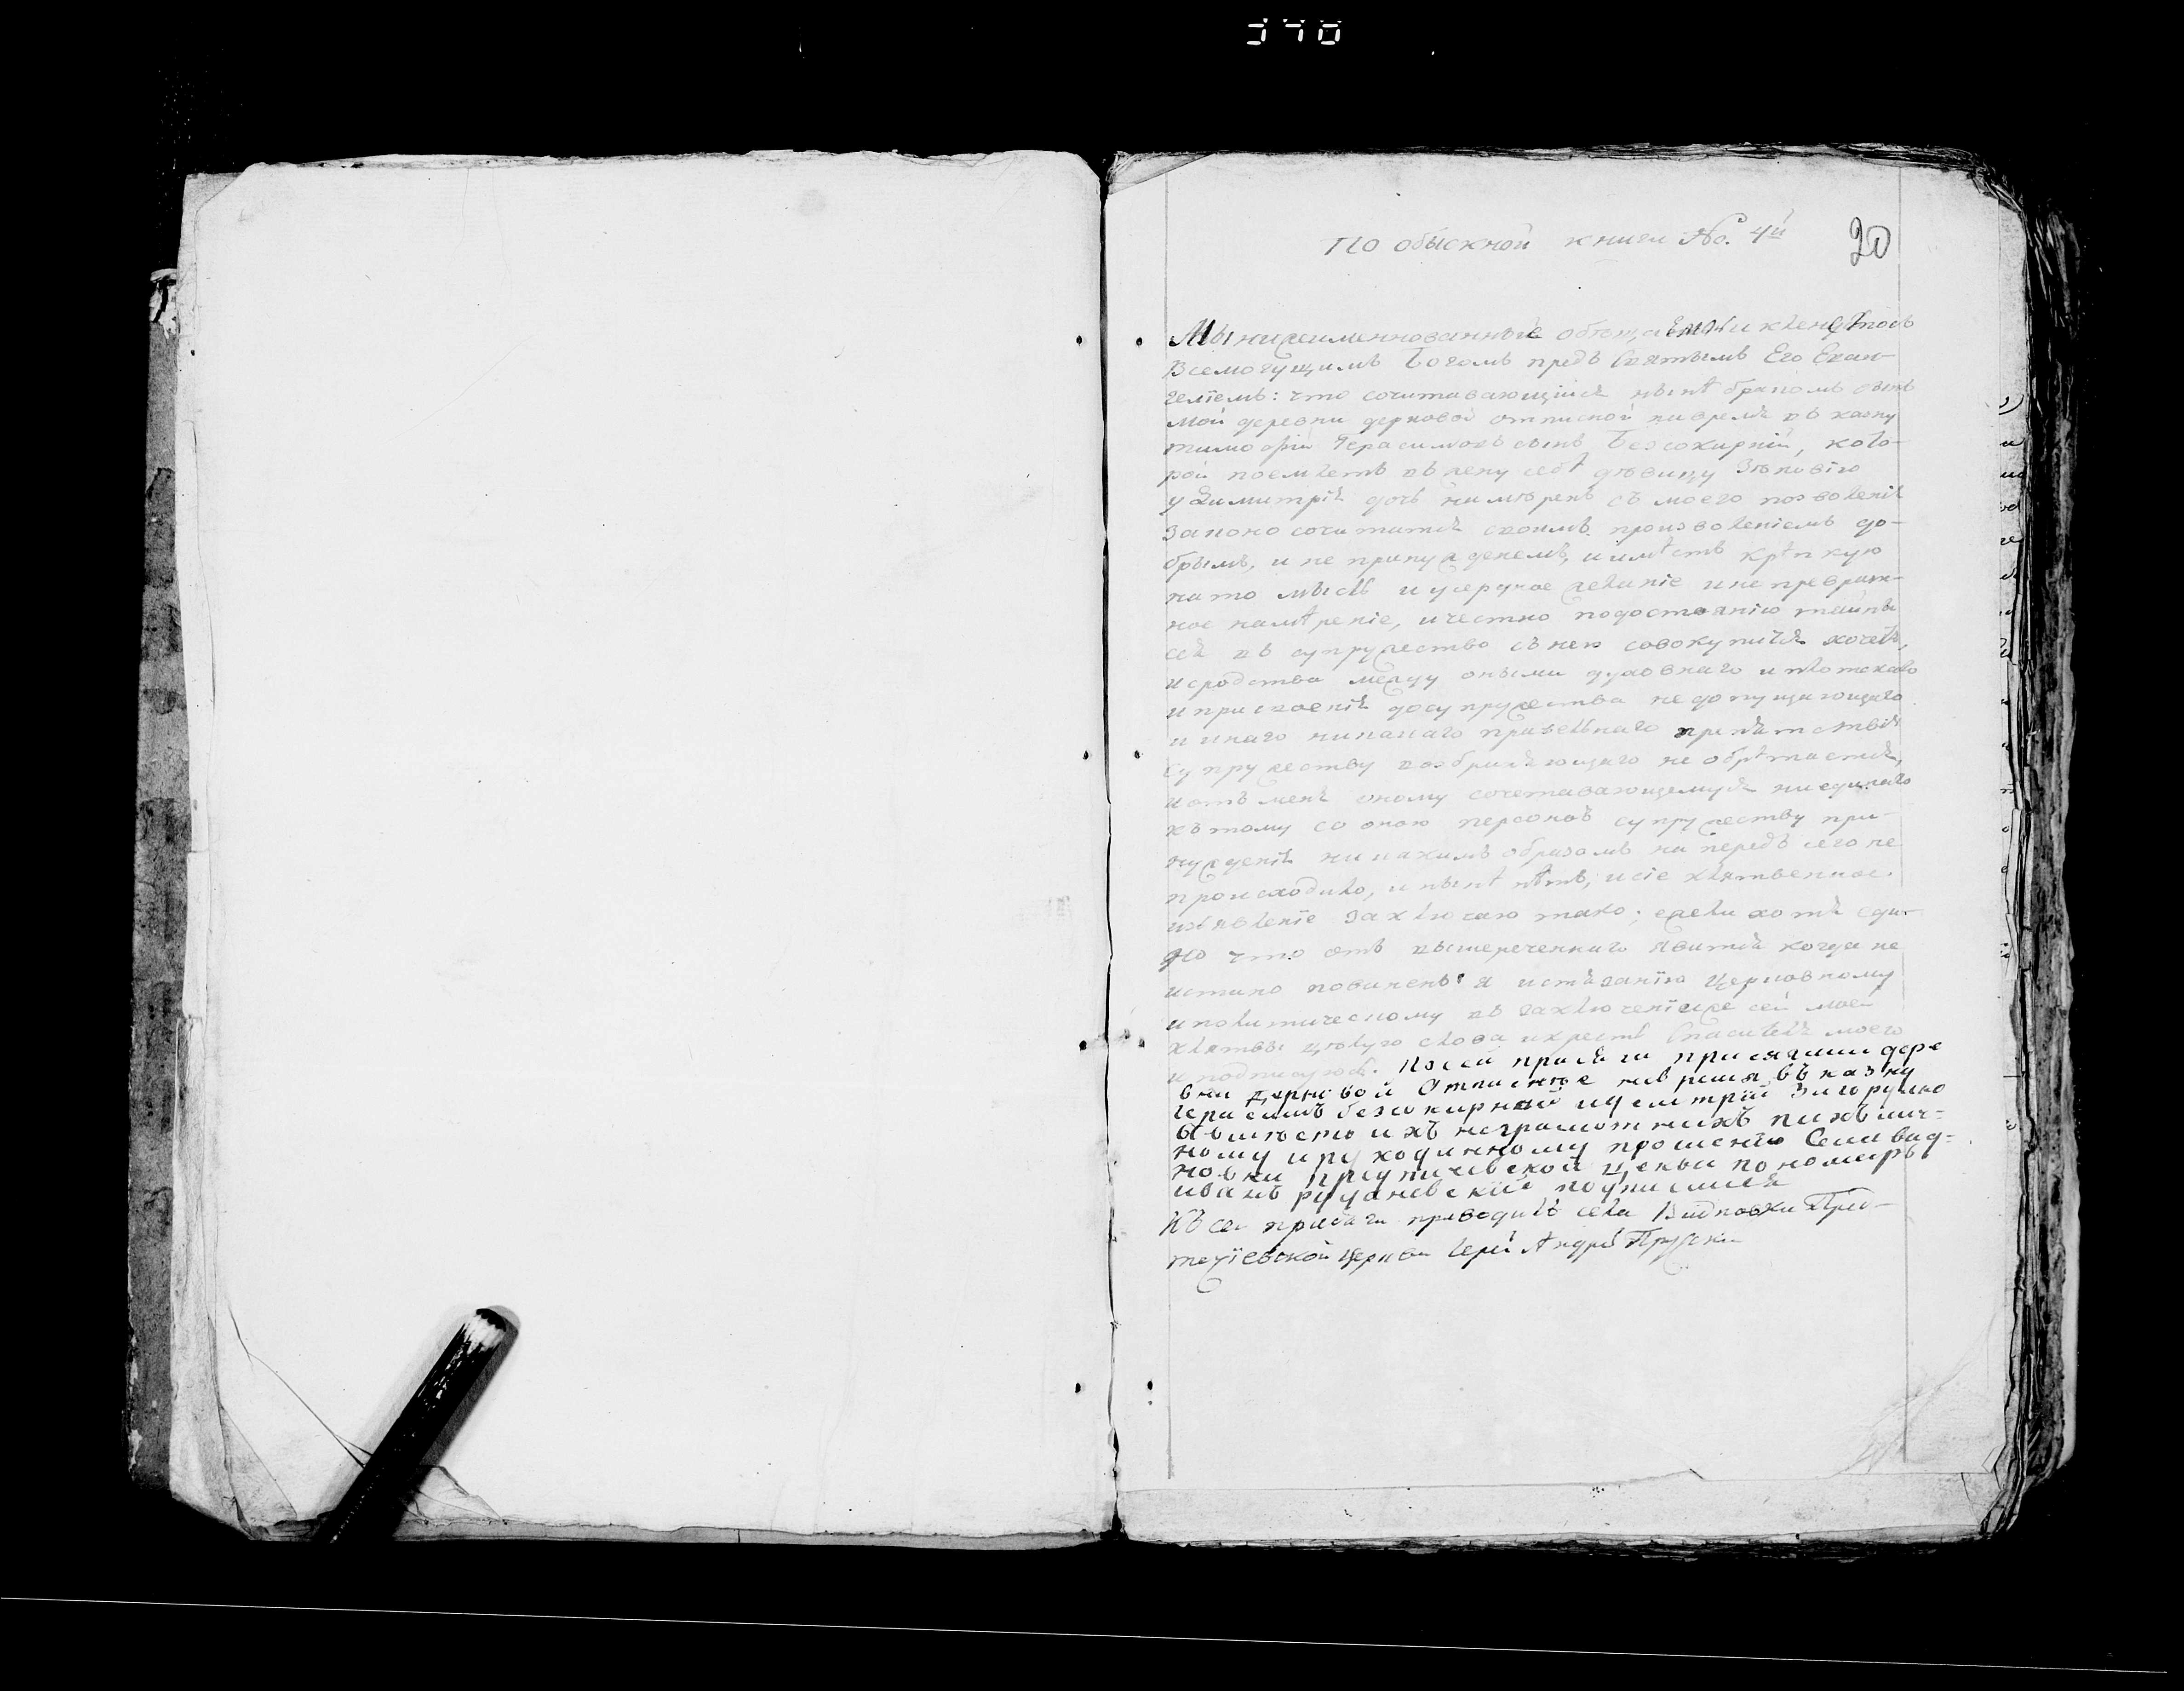 370
По обыскной книги No. 4й
20
Мы нижеименнованные обѣщаемъ и клене
Всемогущимъ Богомъ предъ Святымъ Его Еван-
гелїемъ: что сочитавающїйся нынѣ бракомъ сынъ
мой деревни отписной на время въ казну
тимофѣй Герасимовъ сынъ Безсокирнїй, кото-
рой поемлетъ въ жену себѣ дѣвицу Зѣновїю
Димитрїя дочь намѣренъ съ моего позволенія
законо сочитатся своимъ произволенїемъ до-
брымъ, и не принужденемъ, и имѣетъ крѣпкую
на то мысль и усердное желанїе и не превращ-
ное намѣренїе, и честно по достоянїю тайны
сея въ супружество съ нею совокупится хочетъ,
и сродства между оными духовнаго и плотскаго
и присвоенїя до супружества не допущающаго
и инаго никакаго правелнаго препятствїя
супружеству возбраняющаго не обрѣтается,
и отъ мене оному сочетавающемуся ни единаго
къ тому со оною персоною супружеству при-
нужденїя никакимъ образомъ на передъ сего не
происходило, и нынѣ нѣтъ, и сїе клятвенное
изъявленїе заключаю тако; ежели хотя еди-
но что отъ вышереченнаго явится когда не
истино повиненъ я истязанїю церковному
и политическому въ заключенїиже сей моей
клятвы цѣлую слова и крестъ Спасителя моего
и подписуюсь. По сей присяги присягали дере
вни отписное на время въ казну
герасимъ безсокирной Загорулко
а вмѣсто ихъ неграмотнихъ по ихъ лич-
ному и рукоданному прошенїю Села вид-
новки предтичевской церкви пономаръ
иванъ подписался
Къ сей присяги приводилъ села Видновки Пред-
течїевской церкви Iерей Андрей